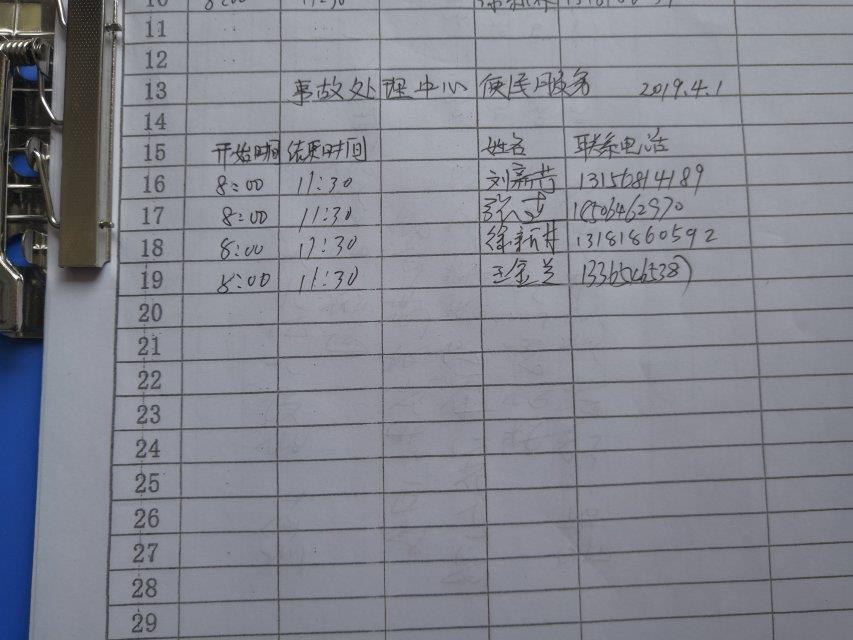 10 8:00 11:30
11
12
13 事故处理中心便民服务 2019.4.1
14
15 开始时间 结束时间 姓名 联系电话
16 8:00 11:30 13156814189
17 8:00 11:30
18 8:00 11:30 徐新 13181860592
19 8:00 11:30 王金兰
20
21
22
23
24
25
26
27
28
29